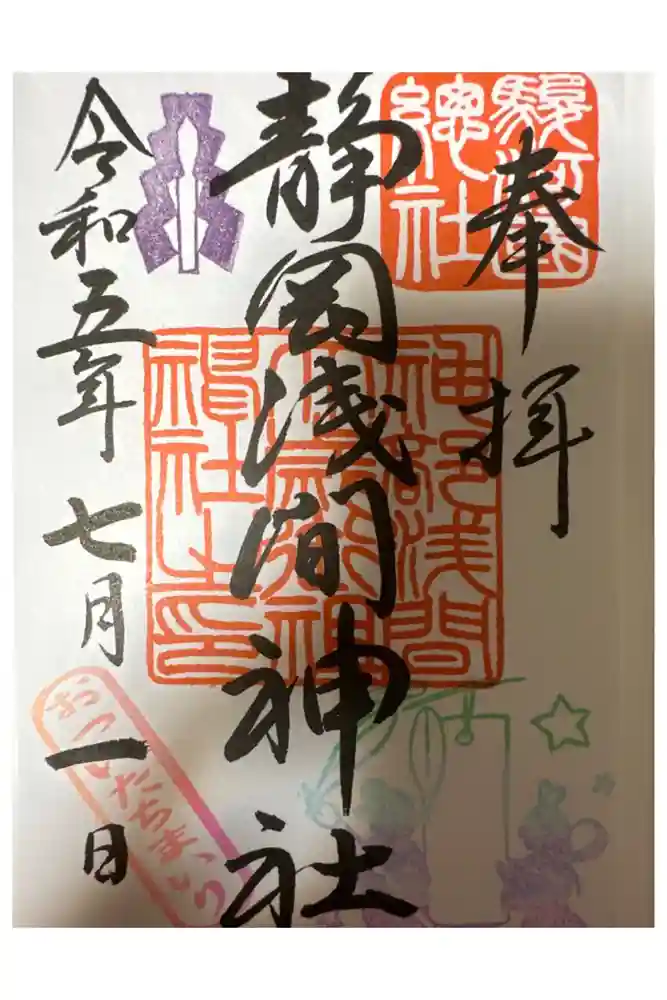 駿河國
總社
奉拝
静岡浅間神社
神部浅間
神社之印
令和五年七月一日
おついたちまいり